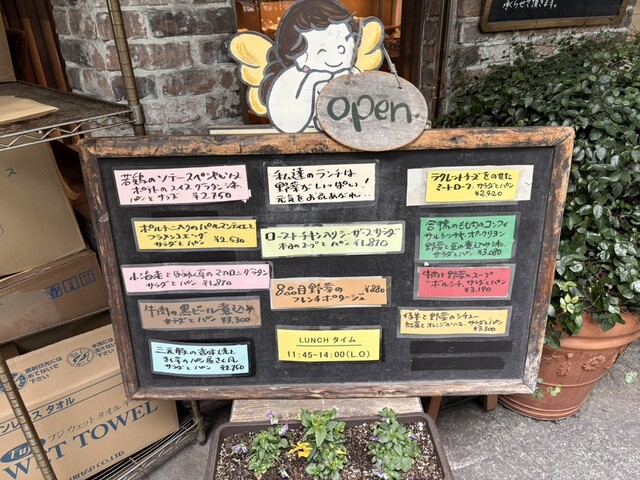 承らせて頂きます。
open
若鶏のソテースペンセルソース
ポテトのスイスグラタン添え
パンとサラダ ¥2,750
私達のランチは
野菜がいっぱい!
元気をお召しあがれ…
ラクレットチーズをのせた
ミートローフ サラダとパン
¥2,420
ポルチーニ入りのパルマンティエと
フラメンコエッグ
サラダとパン ¥2,530
ローストチキン入りシーザースサラダ
本日のスープとパン 1,870
合鴨のもも肉のコンフィ
野菜と豆の煮込み添え
サラダとパン ¥3,080
小海老とほうれん草のマカロニグラタン
サラダとパン ¥1,870
8品目野菜の ¥880
フレンチポタージュ
牛肉と野菜のスープ
"ボルシチ" サラダとパン ¥3,190
牛肉の黒ビール煮込み
サラダとパン ¥3,300
仔羊と野菜のシチュー
紅茶とオレンジのソース サラダとパン
¥3,300
LUNCH タイム
11:45-14:00(L.O)
三元豚の香味焼と
サラダとパン ¥2,750
タオル
フジ ウェット タオル
WET TOWEL